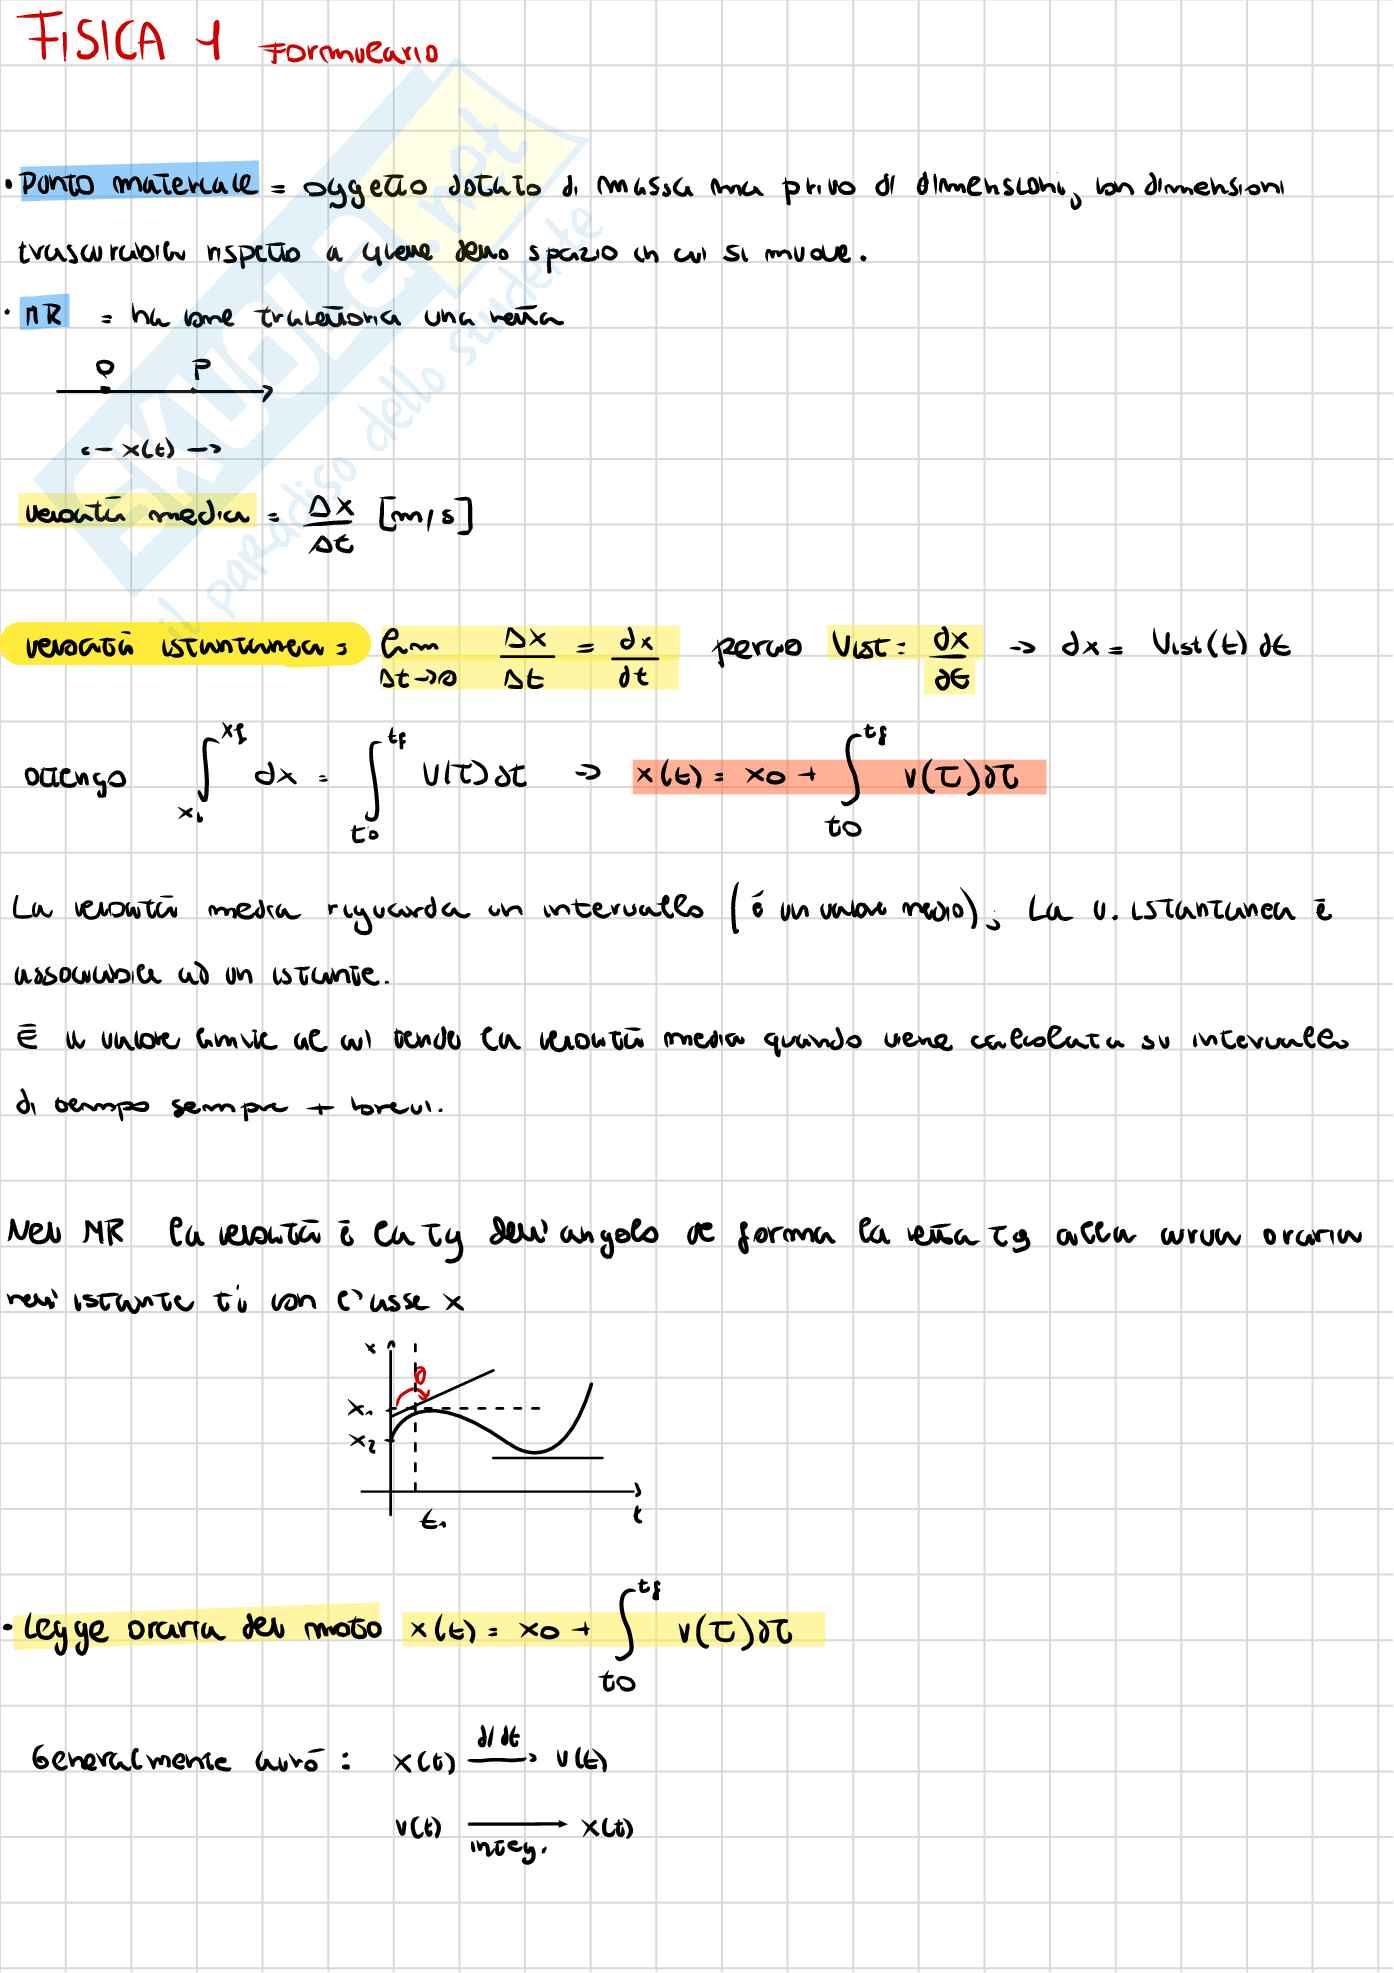 FISICA 1 Formulario
• Punto materiale = oggetto dotato di massa ma privo di dimensioni, con dimensioni
trascurabili rispetto a quelle dello spazio in cui si muove.
• MR = ha come traiettoria una retta
O P
<-- x(t) -->
velocità media = Δx/Δt [m/s]
velocità istantanea = lim Δt→0 Δx/Δt = dx/dt perciò Vist = dx/dt → dx = Vist(t) dt
ottengo ∫_{xi}^{xf} dx = ∫_{t0}^{tf} V(τ) dτ → x(t) = x0 + ∫_{t0}^{tf} v(τ) dτ
La velocità media riguarda un intervallo (è un valore medio); La v. istantanea è
associabile ad un istante.
È il valore limite al cui tende la velocità media quando viene calcolata su intervalli
di tempo sempre + brevi.
Nel MR la velocità è la tg dell'angolo che forma la retta tg alla curva oraria
nell'istante ti con l'asse x
x
θ
x1
x2
t1 t
• Legge oraria del moto x(t) = x0 + ∫_{t0}^{tf} v(τ) dτ
Generalmente avrò : x(t) d/dt → v(t)
v(t) integ. → x(t)
SKUOLA.net
il paradiso dello studente